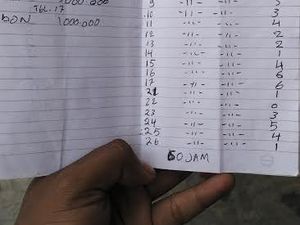 1000.000
TGL. 17
BON 1000.000
9 -11- -11- 3
10 -11- -11- 3
11 -11- -11- 4
12 -11- -11- 2
13 -11- -11- 2
14 -11- -11- 1
15 -11- -11- 4
16 -11- -11- 6
17 -11- -11- 6
21 -11- -11- 1
22 -11- -11- 0
23 -11- -11- 3
24 -11- -11- 5
25 -11- -11- 4
26 -11- -11- 1
60 JAM